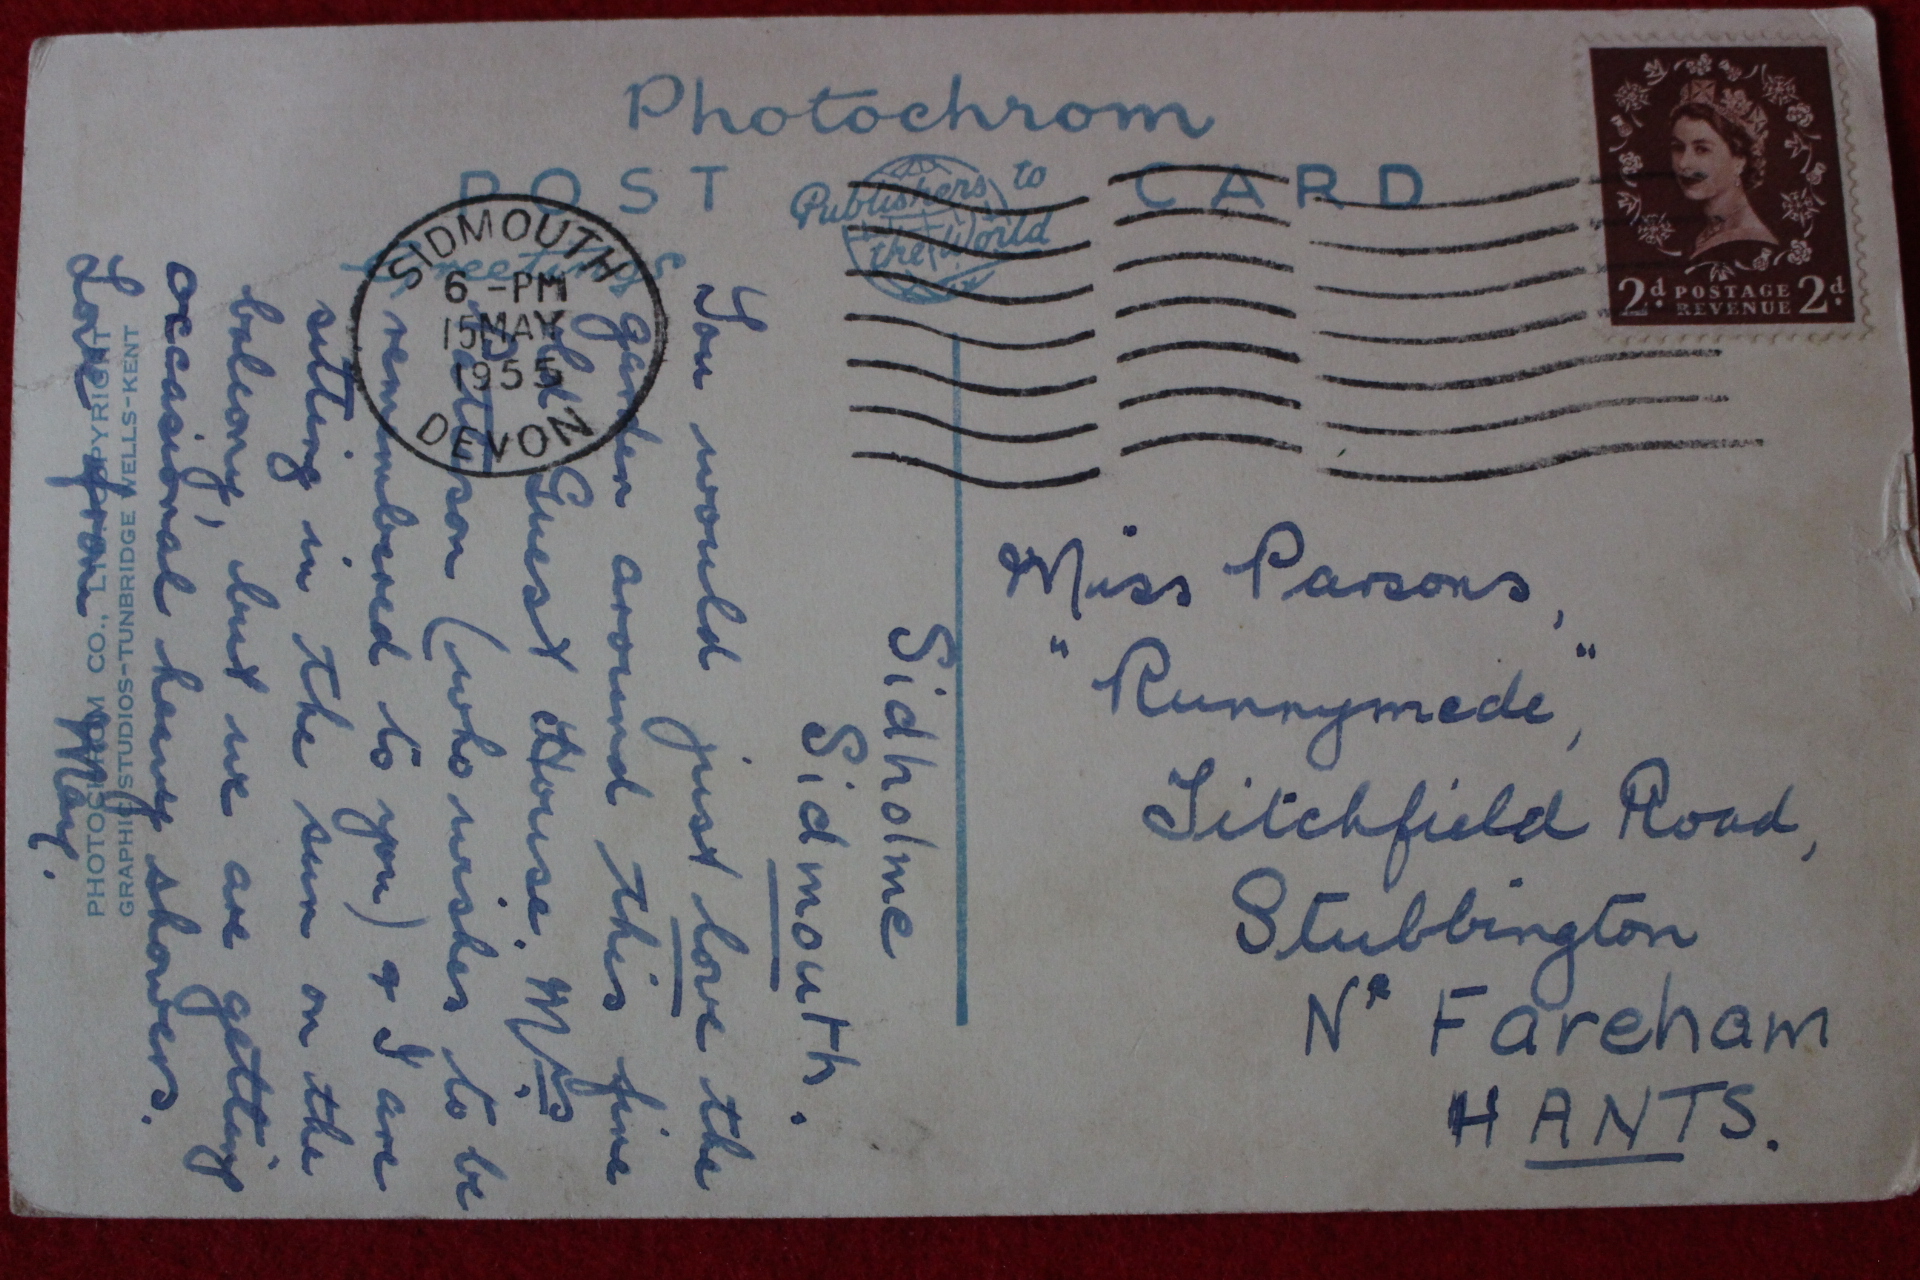 Photochrom
POST CARD
Publishers to
the World
Greetings
SIDMOUTH
6 - PM
15 MAY
1955
DEVON
2d. POSTAGE 2d.
REVENUE
Sidholme
Sidmouth.
You would just love the
garden around this fine
old Guest House. Mrs
son (who wishes to be
remembered to you) & I are
sitting in the sun on the
balcony, but we are getting
occasional heavy showers.
Love from May.
Miss Parsons,
"Runnymede",
Titchfield Road,
Stubbington
Nr Fareham
HANTS.
PHOTOCHROM CO., LTD. COPYRIGHT
GRAPHIC STUDIOS-TUNBRIDGE WELLS-KENT